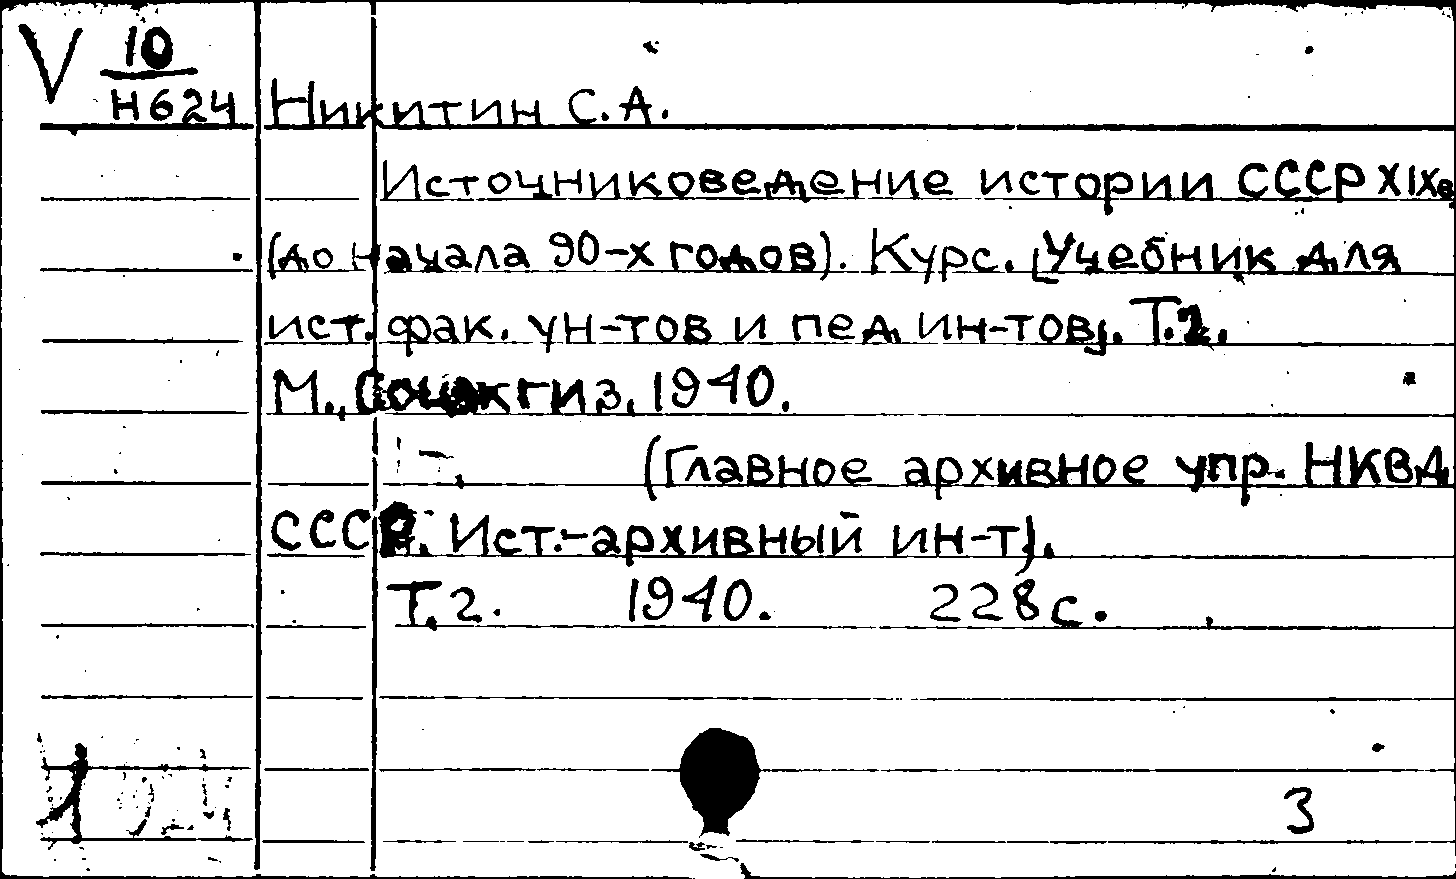 V 10
Н624 Никитин С. А.
Источниковедение истории СССР XIXв.
(до начала 90-х годов). Курс. [Учебник для
ист. фак. ун-тов и пед. ин-тов]. Т.2.
М., Соцэкгиз, 1940.
(Главное архивное упр. НКВД
СССР. Ист.-архивный ин-т).
Т.2. 1940. 228с.
3